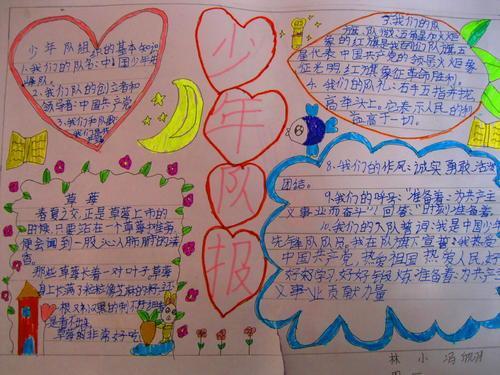 少年队组织的基本知识
1.我们的队名:中国少年先
锋队。
2.我们队的创立者和
领导者:中国共产党
3.我们和队歌:
少
年
队
报
3.我们的队
旗、队徽:五角星加火炬
象的红旗是我们的队旗五
角星代表中国共产党的领导火炬象
征光明红旗象征革命胜利。
4.我们的队礼:右手五指并拢
高举头上。它表示人民的利
益高于一切。
8.我们的作风:诚实 勇敢 活泼
团结。
9.我们的呼号:"准备着:为共产主
义事业而奋斗"!回答:"时刻准备着
10.我们的入队誓言:我是中国少年
先锋队队员。我在队旗下宣誓:我热爱
中国共产党,热爱祖国 热爱人民,好
好学习好好锻炼准备着:为共产
主义事业贡献力量
草莓
春夏之交,正是草莓上市的
时候,只要站在一个草莓摊旁
便会闻到一股沁人肺腑的清
香。
那些草莓长着一对叶子,草莓
身上长满了
草莓非常好吃
林 小 冯